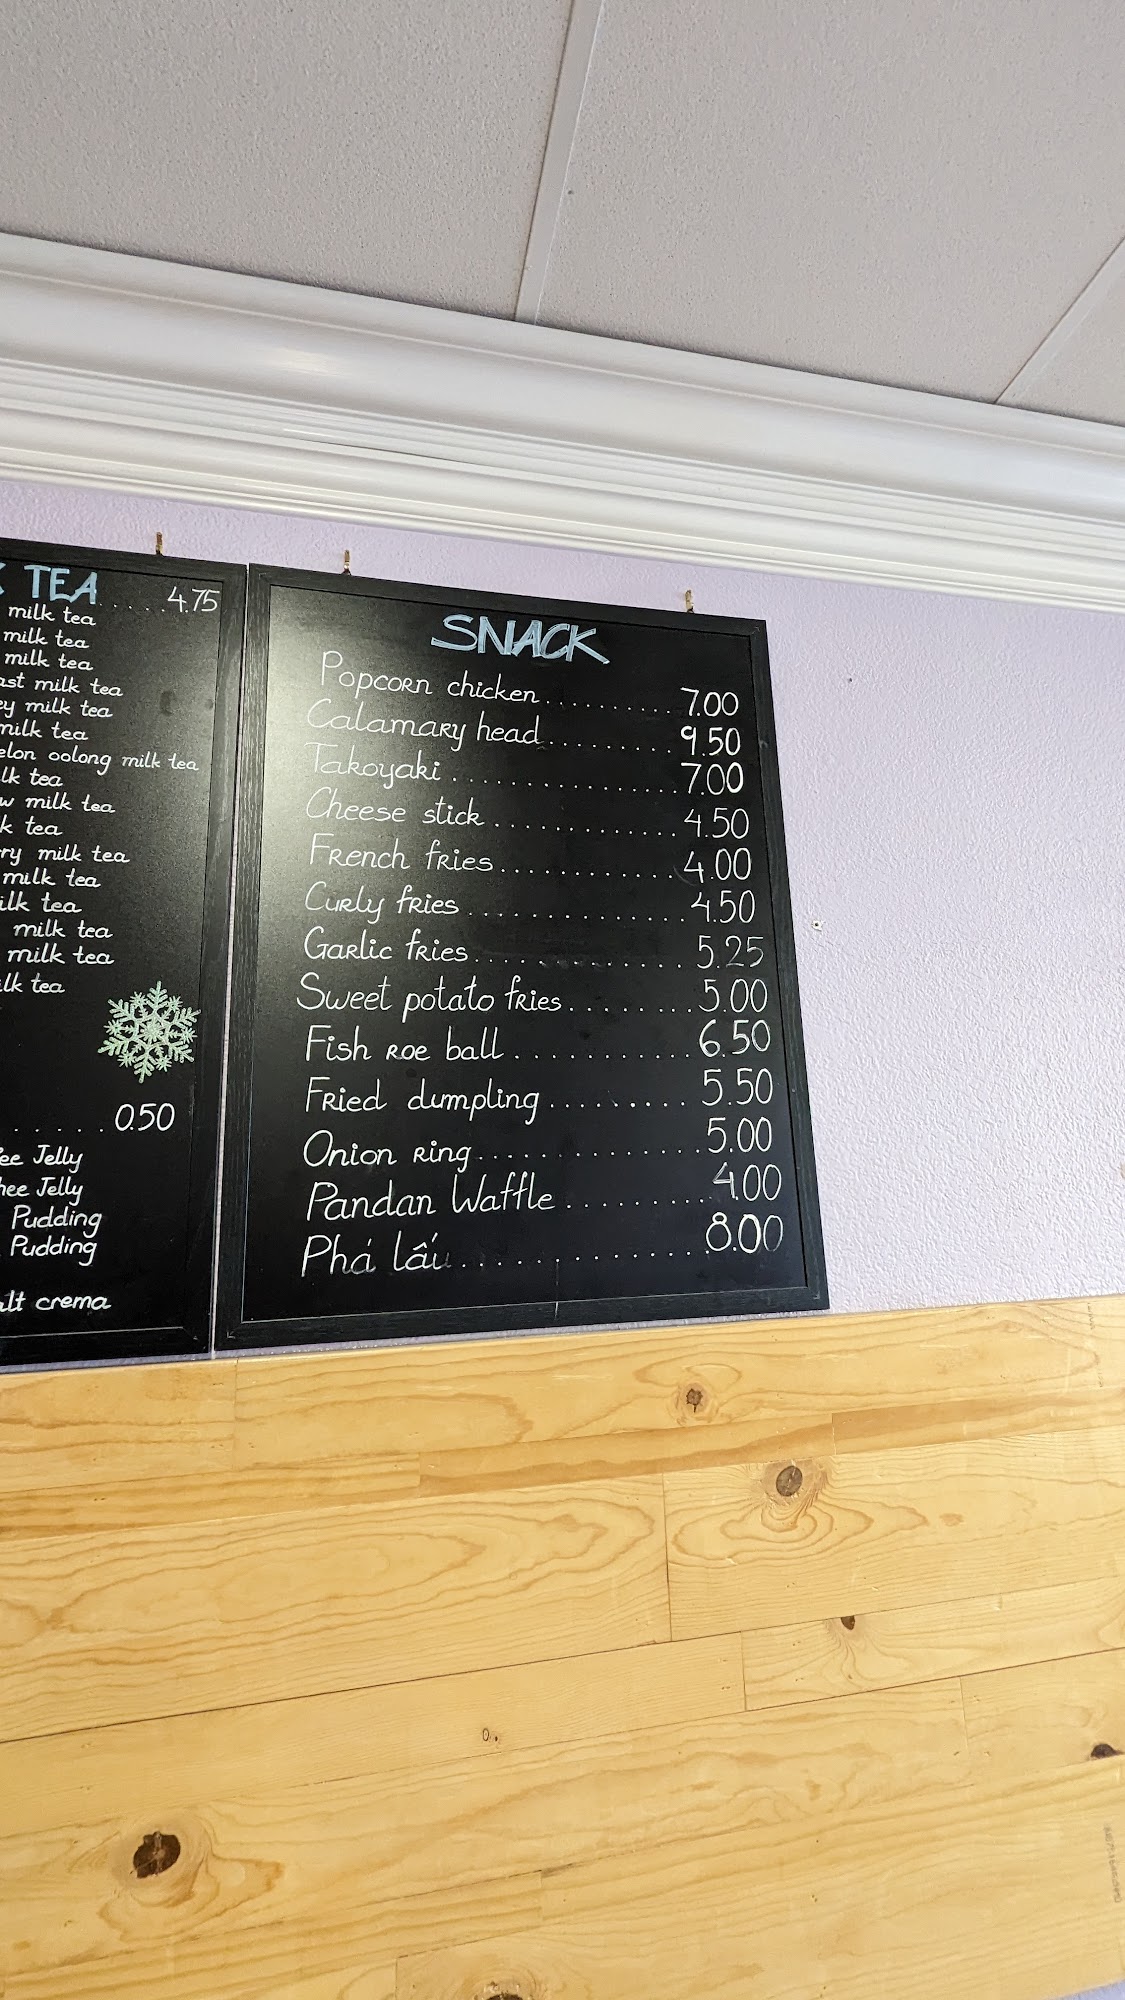 TEA.....4.75
milk tea
milk tea
milk tea
milk tea
milk tea
milk tea
oolong milk tea
tea
milk tea
tea
milk tea
milk tea
tea
milk tea
milk tea
tea
.....0.50
Jelly
Jelly
Pudding
Pudding
crema
SNACK
Popcorn chicken..........7.00
Calamary head..........9.50
Takoyaki..................7.00
Cheese stick..............4.50
French fries.............4.00
Curly fries...............4.50
Garlic fries..............5.25
Sweet potato fries........5.00
Fish roe ball............6.50
Fried dumpling..........5.50
Onion ring...............5.00
Pandan Waffle..........4.00
Phá lấu.................8.00